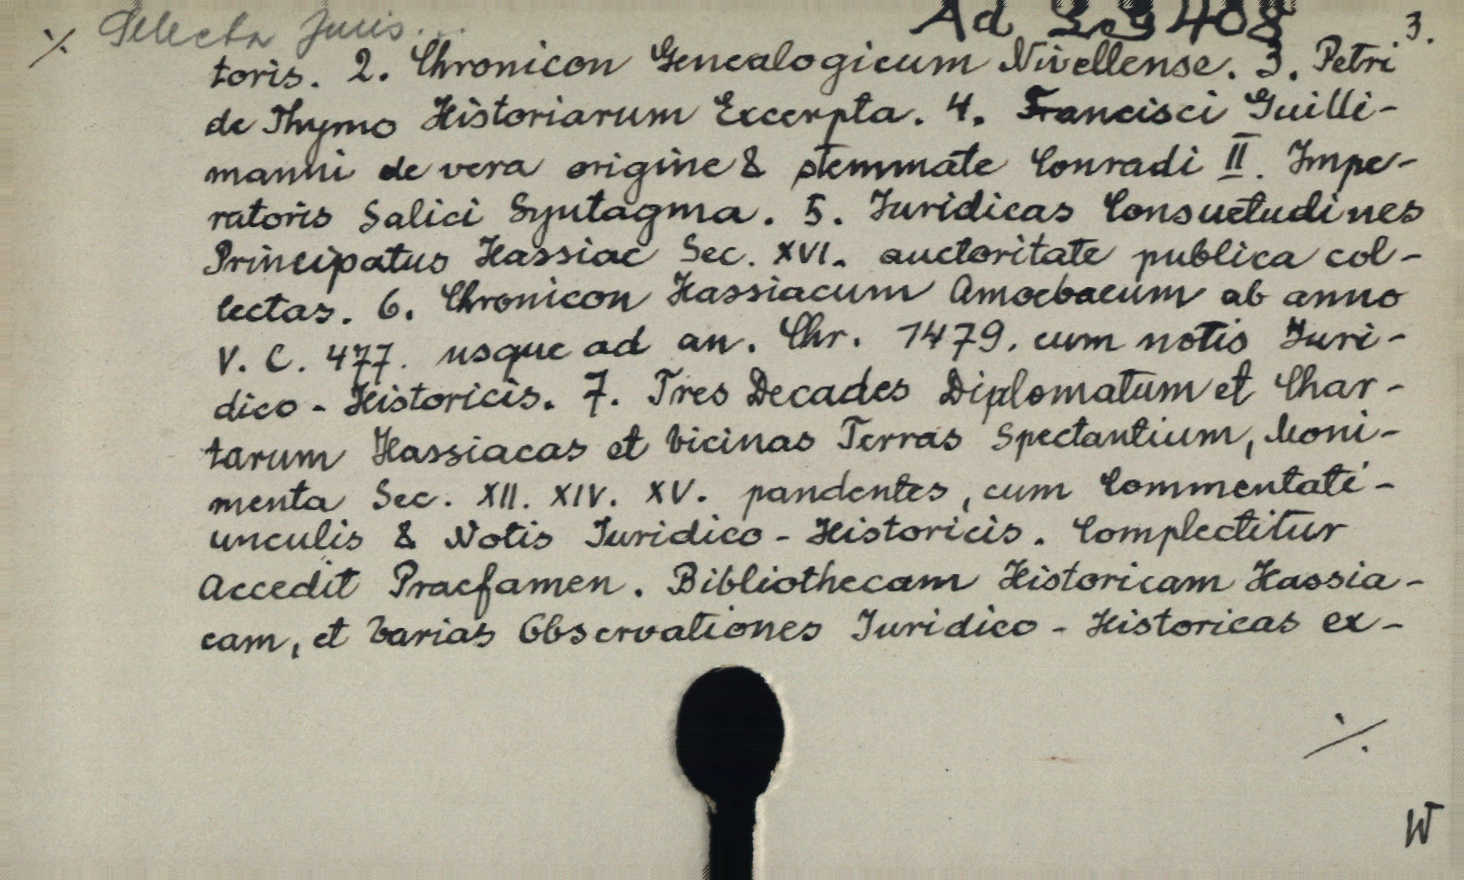 ./. Selecta Juris... Ad 29408 3.
toris. 2. Chronicon Genealogicum Nivellense. 3. Petri
de Thymo Historiarum Excerpta. 4. Francisci Guilli-
manni de vera origine & stemmate Conradi II. Impe-
ratoris Salici Syntagma. 5. Iuridicas Consuetudines
Principatus Hassiae Sec. XVI. auctoritate publica col-
lectas. 6. Chronicon Hassiacum Amoebaeum ab anno
V. C. 477. usque ad an. Chr. 1479. cum notis Iuri-
dico-Historicis. 7. Tres Decades Diplomatum et Char-
tarum Hassiacas et vicinas Terras Spectantium, Moni-
menta Sec. XII. XIV. XV. pandentes, cum Commentati-
unculis & Notis Iuridico-Historicis. Complectitur
Accedit Praefamen. Bibliothecam Historicam Hassia-
cam, et varias Observationes Iuridico-Historicas ex-
./.
W